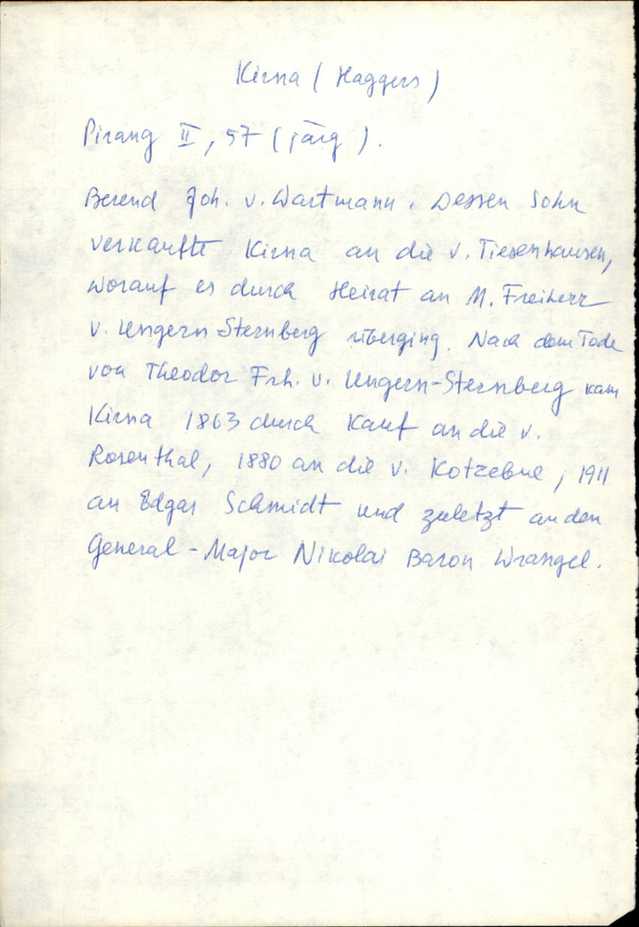 Kirna ( Haggers )
Pirang II, 57 ( Järg ).
Berend Joh. v. Wartmann. Dessen Sohn
verkaufte Kirna an die v. Tiesenhausen,
worauf es durch Heirat an M. Freiherr
v. Ungern-Sternberg überging. Nach dem Tode
von Theodor Frh. v. Ungern-Sternberg kam
Kirna 1863 durch Kauf an die v.
Rosenthal, 1880 an die v. Kotzebue, 1911
an Edgar Schmidt und zuletzt an den
General-Major Nikolai Baron Wrangel.